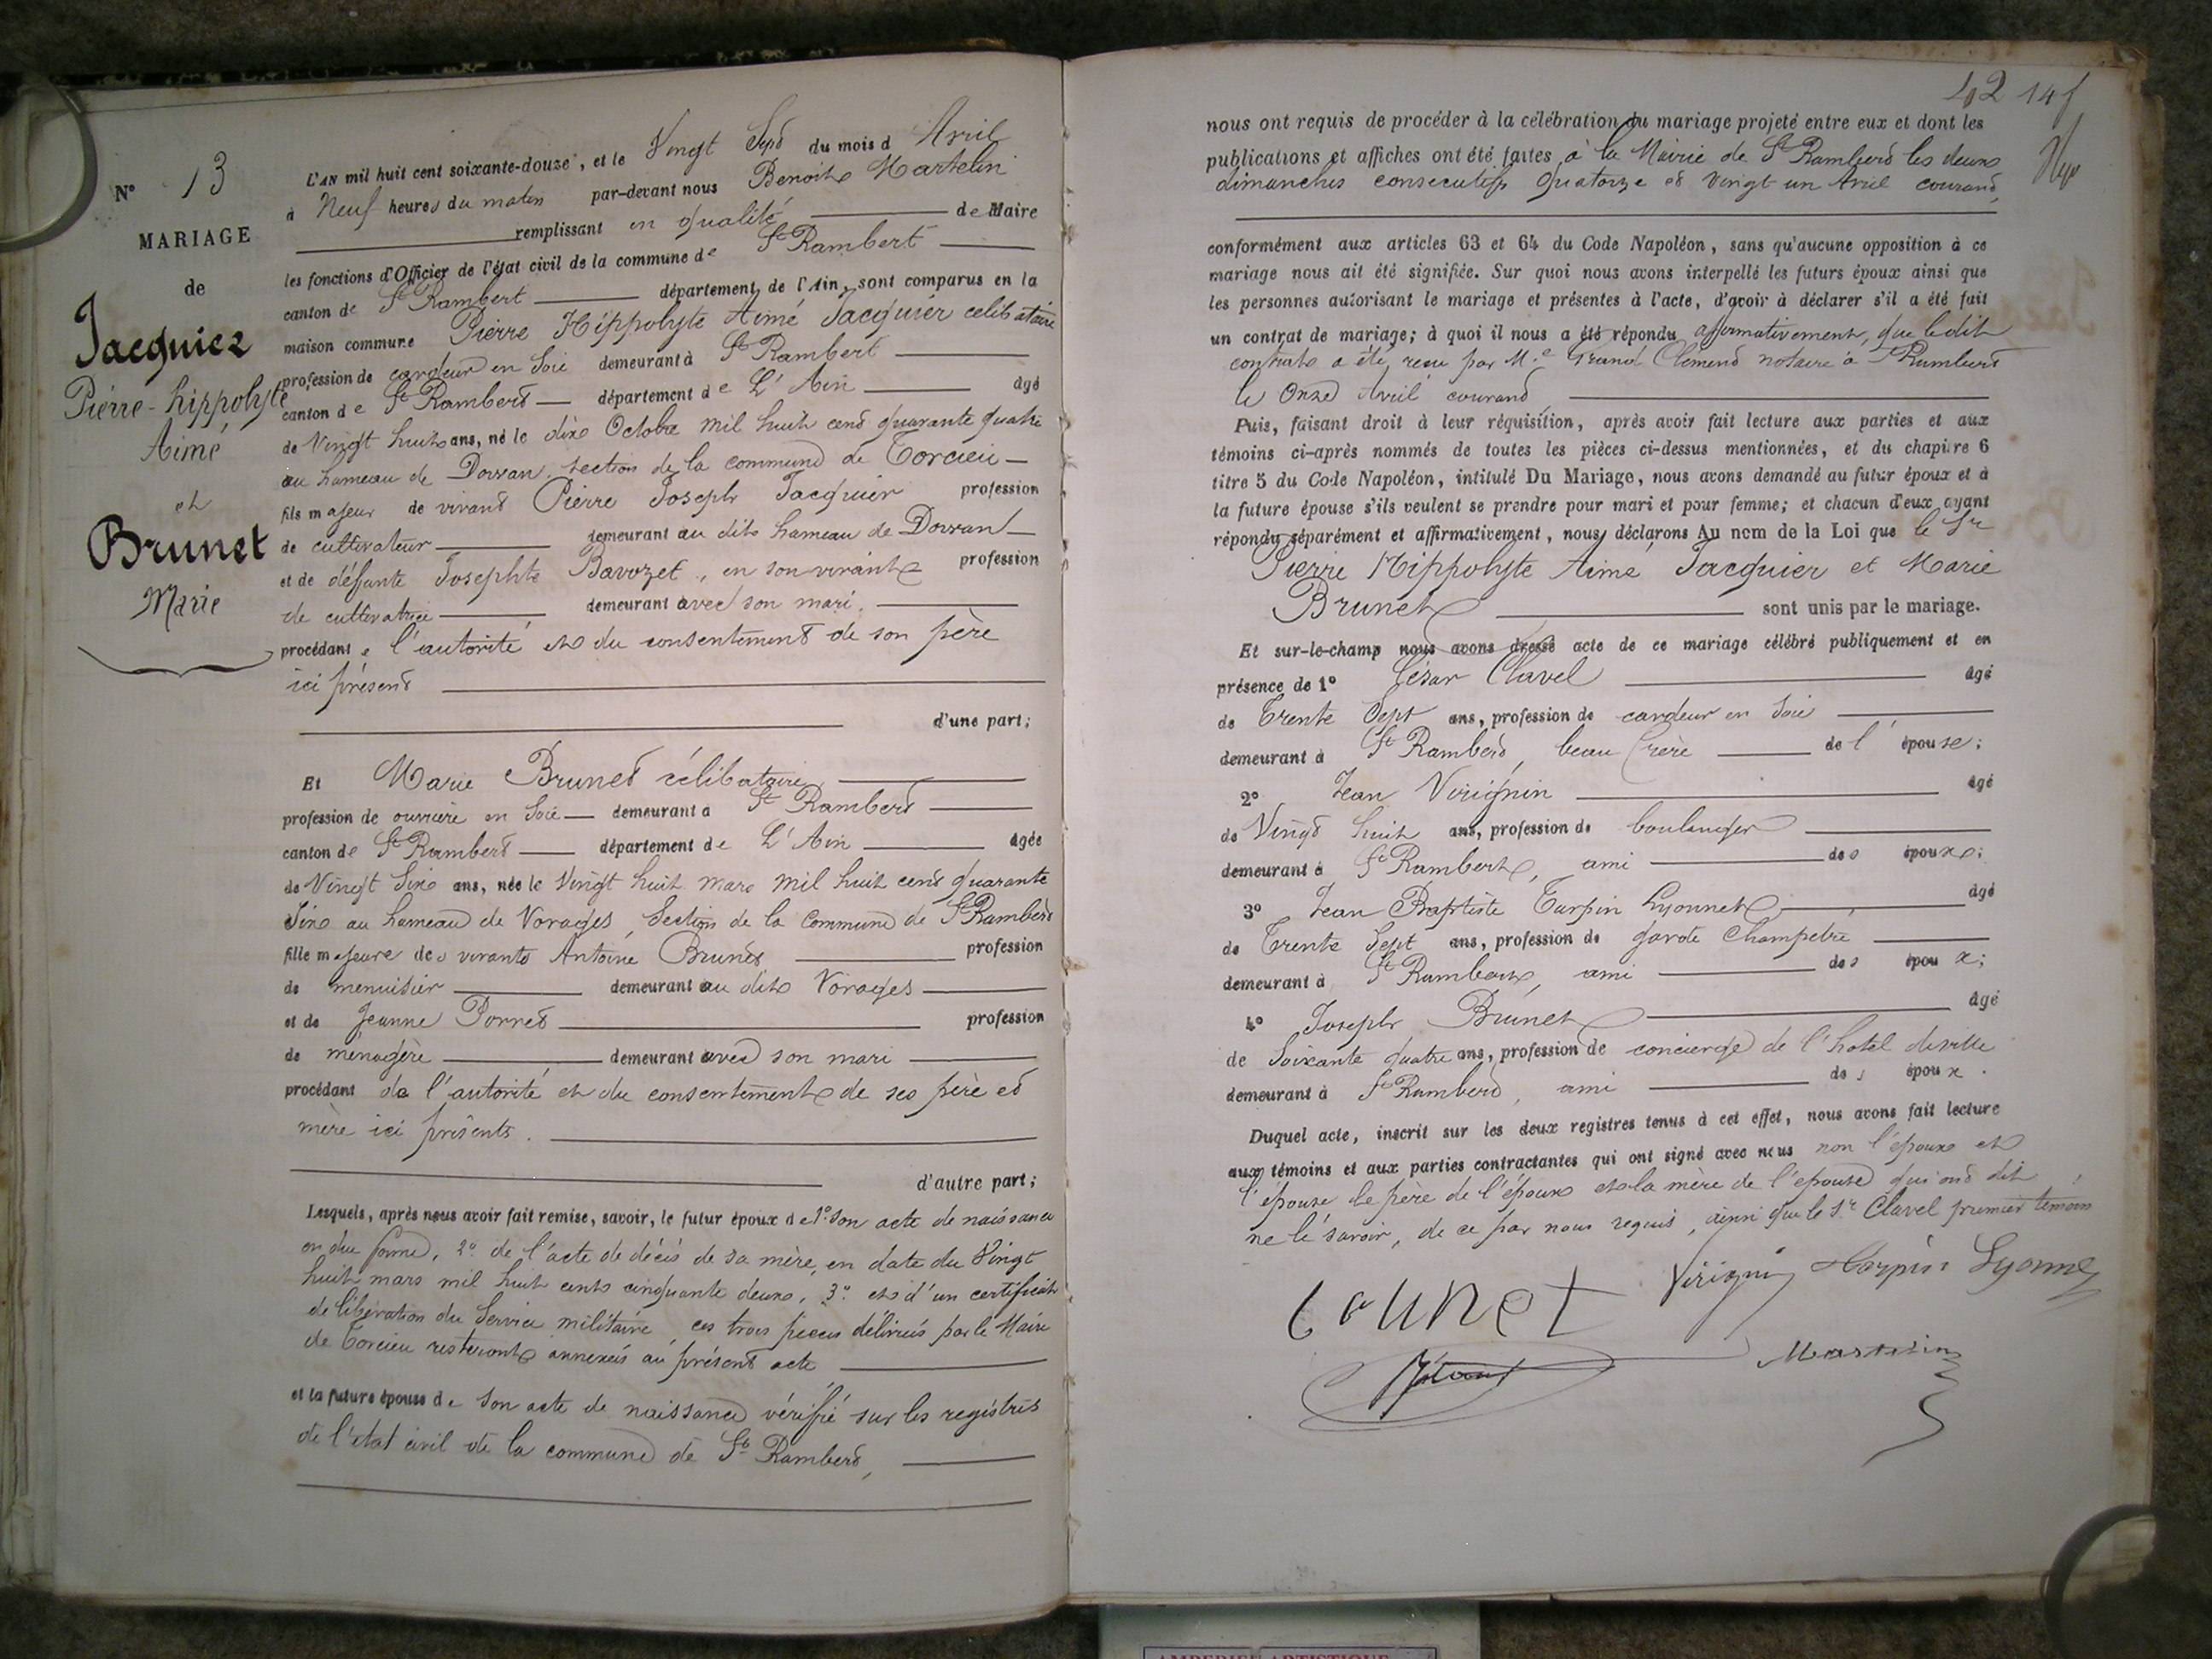 N° 13
MARIAGE
de
Jacquier
Pierre-hippolyte
Aimé
et
Brunet
Marie
L'AN mil huit cent soixante-douze, et le Vingt Sept du mois d Avril
à Neuf heures du maten par-devant nous Benoit Martelin
remplissant en qualité de Maire
les fonctions d'Officier de l'état civil de la commune de St Rambert
canton de St Rambert département de l'Ain, sont comparus en la
maison commune Pierre Hippolyte Aimé Jacquier celibataire
profession de cardeur en Soie demeurant à St Rambert
canton de St Rambert département de L'Ain âgé
de Vingt huit ans, né le dix Octobre mil huit cent quarante quatre
au hameau de Dorvan, section de la commune de Torcieu
fils majeur de vivant Pierre Joseph Jacquier profession
de cultivateur demeurant au dit hameau de Dorvan
et de défunte Josephte Bavozet, en son vivant profession
de cultivatrice demeurant avec son mari.
procédant de l'autorité et du consentement de son père
ici présent
d'une part;
Et Marie Brunet célibataire
profession de ouvrière en Soie demeurant à St Rambert
canton de St Rambert département de L'Ain âgée
de Vingt Six ans, née le Vingt huit mars mil huit cent quarante
Six au hameau de Vorages, Section de la Commune de St Rambert
fille majeure des vivants Antoine Brunet profession
de menuisier demeurant au dit Vorages
et de Jeanne Porret profession
de ménagère demeurant avec son mari
procédant de l'autorité et du consentement de ses père et
mère ici présents.
d'autre part;
Lesquels, après nous avoir fait remise, savoir, le futur époux de 1° son acte de naissance
en due forme, 2° de l'acte de décès de sa mère, en date du Vingt
huit mars mil huit cent cinquante deux, 3° et d'un certificat
de libération du Service militaire, ces trois pieces délivrées par le Maire
de Torcieu resteront annexées au présent acte
et la future épouse de son acte de naissance vérifié sur les registres
de l'état civil de la commune de St Rambert,
42 141
nous ont requis de procéder à la célébration du mariage projeté entre eux et dont les
publications et affiches ont été faites à la Mairie de St Rambert les deux
dimanches consecutifs quatorze et vingt un Avril courant,
conformément aux articles 63 et 64 du Code Napoléon, sans qu'aucune opposition à ce
mariage nous ait été signifiée. Sur quoi nous avons interpellé les futurs époux ainsi que
les personnes autorisant le mariage et présentes à l'acte, d'avoir à déclarer s'il a été fait
un contrat de mariage; à quoi il nous a été répondu affirmativement, que ledit
contrat a été reçu par Me Grand Clément notaire à St Rambert
le Onze Avril courant
Puis, faisant droit à leur réquisition, après avoir fait lecture aux parties et aux
témoins ci-après nommés de toutes les pièces ci-dessus mentionnées, et du chapitre 6
titre 5 du Code Napoléon, intitulé Du Mariage, nous avons demandé au futur époux et à
la future épouse s'ils veulent se prendre pour mari et pour femme; et chacun d'eux ayant
répondu séparément et affirmativement, nous déclarons Au nom de la Loi que le Sr
Pierre Hippolyte Aimé Jacquier et Marie
Brunet sont unis par le mariage.
Et sur-le-champ nous avons dressé acte de ce mariage célébré publiquement et en
présence de 1° César Clavel âgé
de Trente Sept ans, profession de cardeur en Soie
demeurant à St Rambert, beau frère de l'épouse;
2° Jean Virignin âgé
de Vingt huit ans, profession de boulanger
demeurant à St Rambert, ami des époux;
3° Jean Baptiste Turpin Lyonnet âgé
de Trente Sept ans, profession de garde Champetre
demeurant à St Rambert, ami des époux;
4° Joseph Brunet âgé
de Soixante quatre ans, profession de concierge de l'hotel de ville
demeurant à St Rambert, ami des époux.
Duquel acte, inscrit sur les deux registres tenus à cet effet, nous avons fait lecture
aux témoins et aux parties contractantes qui ont signé avec nous non l'époux et
l'épouse le père de l'époux et la mère de l'épouse qui ont dit
ne le savoir, de ce par nous requis, ainsi que le Sr Clavel premier témoin
Virignin Turpin Lyonnet
brunet
Martelin